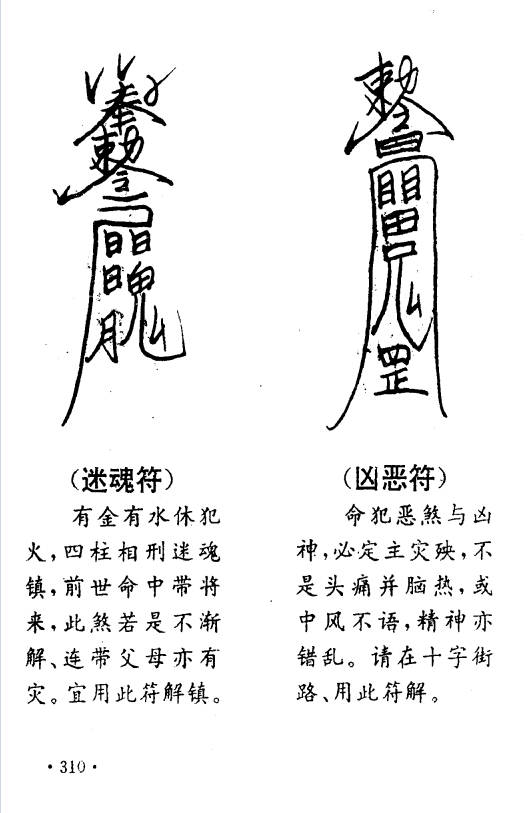 (迷魂符)
有金有水休犯
火,四柱相刑迷魂
镇,前世命中带将
来,此煞若是不渐
解、连带父母亦有
灾。宜用此符解镇。
(凶恶符)
命犯恶煞与凶
神,必定主灾殃,不
是头痛并脑热,或
中风不语,精神亦
错乱。请在十字街
路、用此符解。
·310·